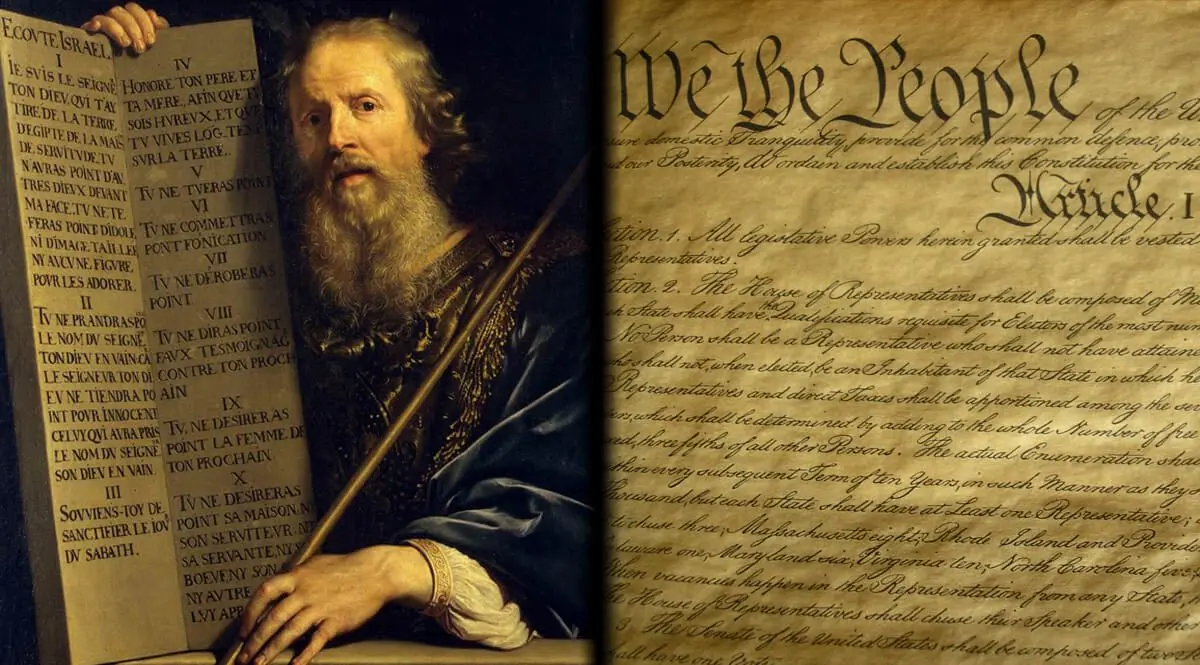 ECOVTE ISRAEL
I
IE SVIS LE SEIGNE
TON DIEV, QVI T'AY
TIRE DE LA TERRE
D'EGIPTE DE LA MAIS
DE SERVITVDE. TV
N'AVRAS POINT D'AV
TRES DIEVX DEVANT
MA FACE. TV NE TE
FERAS POINT D'IDOLE
NI D'IMAGE TAILLEE
NY AVCVNE FIGVRE
POVR LES ADORER.
II
TV NE PRANDRAS PO
LE NOM DV SEIGNE
TON DIEV EN VAIN CA
LE SEIGNEVR TON DI
EV NE TIENDRA PO
INT POVR INNOCENT
CELVY QVI AVRA PRIS
LE NOM DV SEIGNE
SON DIEV EN VAIN.
III
SOVVIENS-TOY DE
SANCTIFIER LE IOV
DV SABATH.
IV
HONORE TON PERE ET
TA MERE, AFIN QVE TV
SOIS HVREVX, ET QVE
TV VIVES LOG.TEM
SVR LA TERRE.
V
TV NE TVERAS POINT
VI
TV NE COMMETTRAS
POINT FONICATION
VII
TV NE DEROBERAS
POINT
VIII
TV NE DIRAS POINT
FAVX TESMOIGNAG
CONTRE TON PROCH
AIN
IX
TV, NE DESIRERAS
POINT LA FEMME DE
TON PROCHAIN.
X
TV NE DESIRERAS
POINT SA MAISON N
SON SERVITEVR, NY
SA SERVANTE, NY
BOEVE NY SON
NY AVTRE
LVY APP
We the People of the U
sure domestic Tranquility, provide for the common defence, pro
d our Posterity, do ordain and establish this Constitution for th
Article. I
ction. 1. All legislative Powers herein granted shall be vested
Representatives.
ction. 2. The House of Representatives shall be composed of M
h State shall have the Qualifications requisite for Electors of the most num
No Person shall be a Representative who shall not have attain
ho shall not, when elected, be an Inhabitant of that State in which he
Representatives and direct Taxes shall be apportioned among the se
ers, which shall be determined by adding to the whole Number of free
ed, three fifths of all other Persons. The actual Enumeration sha
thin every subsequent Term of ten Years, in such Manner as they s
Thousand, but each State shall have at Least one Representative;
to chuse three, Massachusetts eight, Rhode Island and Provide
laware one, Maryland six, Virginia ten, North Carolina five,
When vacancies happen in the Representation from any State,
The House of Representatives shall chuse their Speaker and other
3. The Senate of the United States shall be composed of two
all have one Vote.